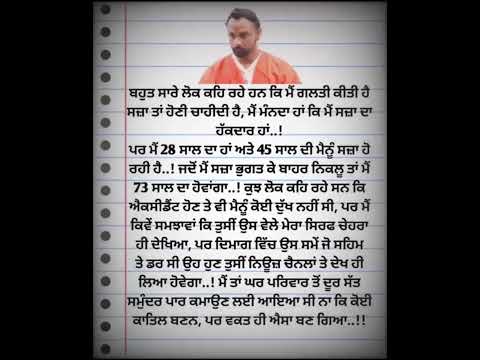 ਬਹੁਤ ਸਾਰੇ ਲੋਕ ਕਹਿ ਰਹੇ ਹਨ ਕਿ ਮੈਂ ਗਲਤੀ ਕੀਤੀ ਹੈ
ਸਜ਼ਾ ਤਾਂ ਹੋਣੀ ਚਾਹੀਦੀ ਹੈ, ਮੈਂ ਮੰਨਦਾ ਹਾਂ ਕਿ ਮੈਂ ਸਜ਼ਾ ਦਾ
ਹੱਕਦਾਰ ਹਾਂ..!
ਪਰ ਮੈਂ 28 ਸਾਲ ਦਾ ਹਾਂ ਅਤੇ 45 ਸਾਲ ਦੀ ਮੈਨੂੰ ਸਜ਼ਾ ਹੋ
ਰਹੀ ਹੈ..! ਜਦੋਂ ਮੈਂ ਸਜ਼ਾ ਭੁਗਤ ਕੇ ਬਾਹਰ ਨਿਕਲੂ ਤਾਂ ਮੈਂ
73 ਸਾਲ ਦਾ ਹੋਵਾਂਗਾ..! ਕੁਝ ਲੋਕ ਕਹਿ ਰਹੇ ਸਨ ਕਿ
ਐਕਸੀਡੈਂਟ ਹੋਣ ਤੇ ਵੀ ਮੈਨੂੰ ਕੋਈ ਦੁੱਖ ਨਹੀਂ ਸੀ, ਪਰ ਮੈਂ
ਕਿਵੇਂ ਸਮਝਾਵਾਂ ਕਿ ਤੁਸੀਂ ਉਸ ਵੇਲੇ ਮੇਰਾ ਸਿਰਫ ਚੇਹਰਾ
ਹੀ ਦੇਖਿਆ, ਪਰ ਦਿਮਾਗ ਵਿੱਚ ਉਸ ਸਮੇਂ ਜੋ ਸਹਿਮ
ਤੇ ਡਰ ਸੀ ਉਹ ਹੁਣ ਤੁਸੀਂ ਨਿਊਜ਼ ਚੈਨਲਾਂ ਤੇ ਦੇਖ ਹੀ
ਲਿਆ ਹੋਵੇਗਾ..! ਮੈਂ ਤਾਂ ਘਰ ਪਰਿਵਾਰ ਤੋਂ ਦੂਰ ਸੱਤ
ਸਮੁੰਦਰ ਪਾਰ ਕਮਾਉਣ ਲਈ ਆਇਆ ਸੀ ਨਾ ਕਿ ਕੋਈ
ਕਾਤਿਲ ਬਣਨ, ਪਰ ਵਕਤ ਹੀ ਐਸਾ ਬਣ ਗਿਆ..!!